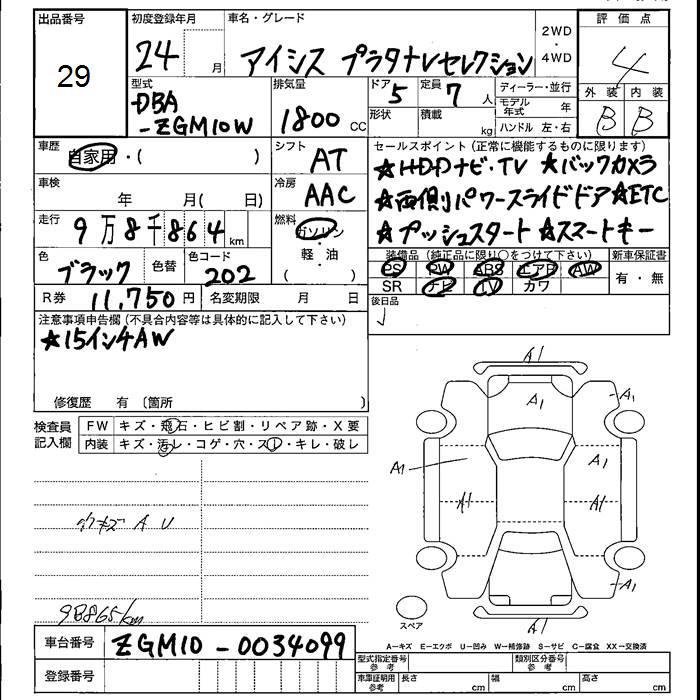 出品番号 初度登録年月 車名・グレード 評価点
29 24 月 アイシス プラタナレセレクション 2WD・4WD 4
型式 排気量 ドア 5 定員 7 人 ディーラー・並行 外装 内装
DBA 形状 積載 kg モデル年式 年 B B
-ZGM10W 1800 CC ハンドル 左・右
車歴 自家用・( ) シフト AT セールスポイント (正常に機能するものに限ります)
★HDDナビ・TV ★バックカメラ
車検 年 月( 日) 冷房 AAC ★両側パワースライドドア ★ETC
走行 9万8千864 km 燃料 ガソリン ★プッシュスタート ★スマートキー
軽・油
( )
色 ブラック 色替 色コード 202 装備品 (純正品に限り○をつけて下さい) 新車保証書
PS PW ABS エアB AW 有・無
R券 11,750 円 名変期限 月 日 SR ナビ TV カワ
注意事項申告欄 (不具合内容等は具体的に記入して下さい) 後日品
★15インチAW
修復歴 有 〔箇所 〕
検査員記入欄 FW キズ・飛石・ヒビ割・リペア跡・X要
内装 キズ・汚レ・コゲ・穴・スレ・キレ・破レ
A1
A1 A1
A1 A1
A1 A1
A1
キズ A U
98865/km
スペア A1
A-キズ E-エクボ U-凹み W-補修跡 S-サビ C-腐食 XX-交換済
車台番号 ZGM10-0034099
型式指定番号 参考 類別区分番号 参考
登録番号 車庫証明用 参考 長さ cm 幅 cm 高さ cm